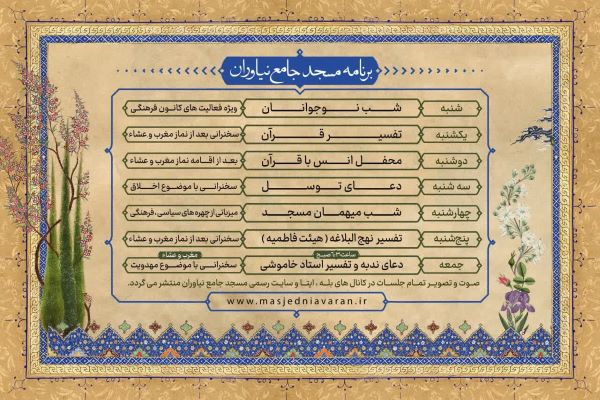 برنامه مسجد جامع نیاوران
شنبه شب نوجوانان ویژه فعالیت های کانون فرهنگی
یکشنبه تفسیر قرآن سخنرانی بعد از نماز مغرب و عشاء
دوشنبه محفل انس با قرآن بعد از اقامه نماز مغرب و عشاء
سه شنبه دعای توسل سخنرانی با موضوع اخلاق
چهارشنبه شب میهمان مسجد میزبانی از چهره‌های سیاسی، فرهنگی
پنج‌شنبه تفسیر نهج البلاغه (هیئت فاطمیه) سخنرانی بعد از نماز مغرب و عشاء
ساعت ۶:۳۰ صبح مغرب و عشاء
جمعه دعای ندبه و تفسیر استاد خاموشی سخنرانی با موضوع مهدویت
صوت و تصویر تمام جلسات در کانال های بله ، ایتا و سایت رسمی مسجد جامع نیاوران منتشر می گردد.
www.masjedniavaran.ir